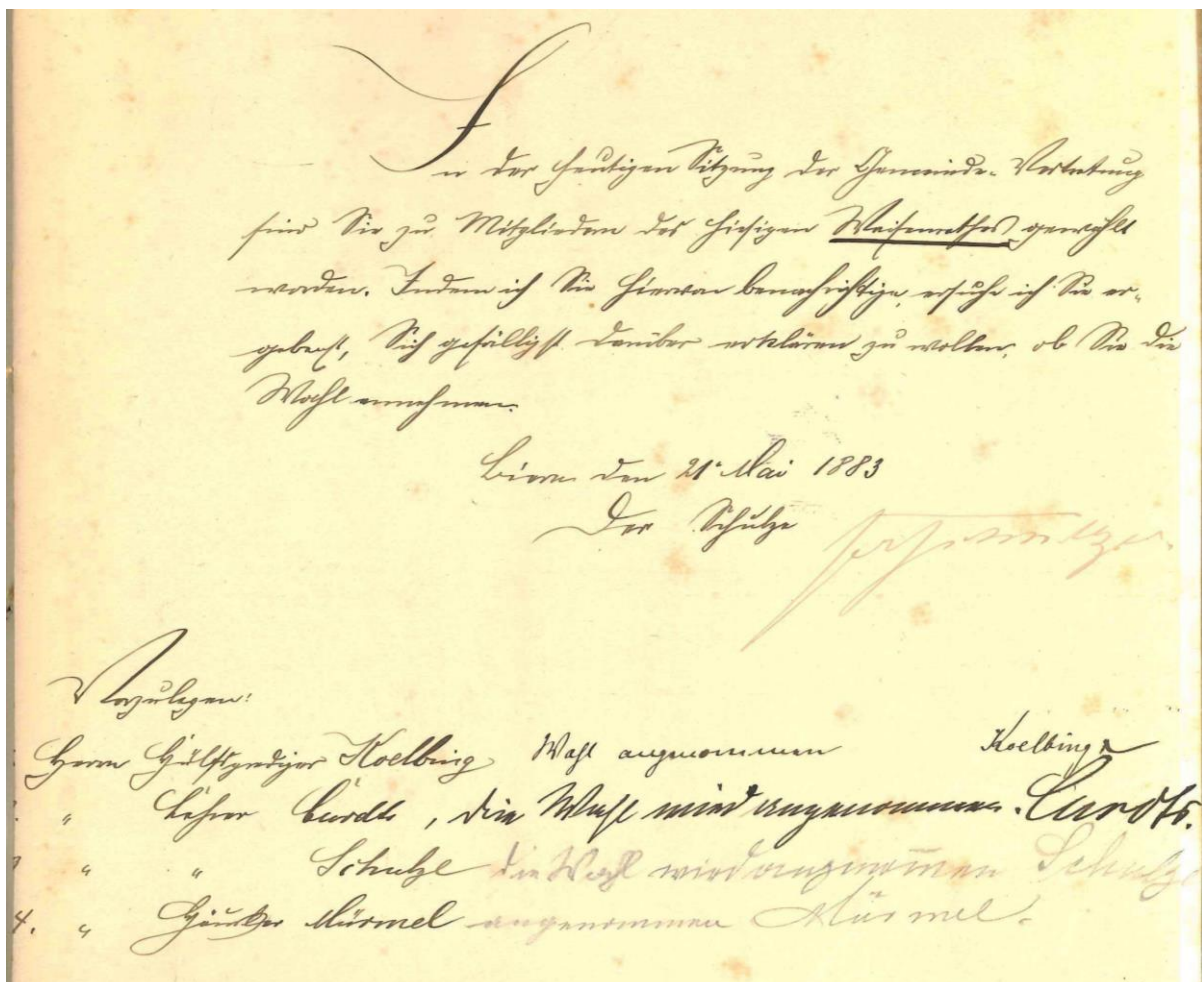 In der heutigen Sitzung der Gemeinde-Vertretung
sind Sie zu Mitgliedern des hiesigen Waisenrathes gewählt
worden. Indem ich Sie hiervon benachrichtige, ersuche ich Sie er-
gebenst, Sich gefälligst darüber erklären zu wollen, ob Sie die
Wahl annehmen.
den 21. Mai 1883
Der Schulze
Vorzulegen:
Herrn Hülfsprediger Koelbing Wahl angenommen Koelbing
" Lehrer die Wahl wird angenommen.
" " Schulze die Wahl wird angenommen Schulze
4. " Häusler Mürmel angenommen Mürmel.